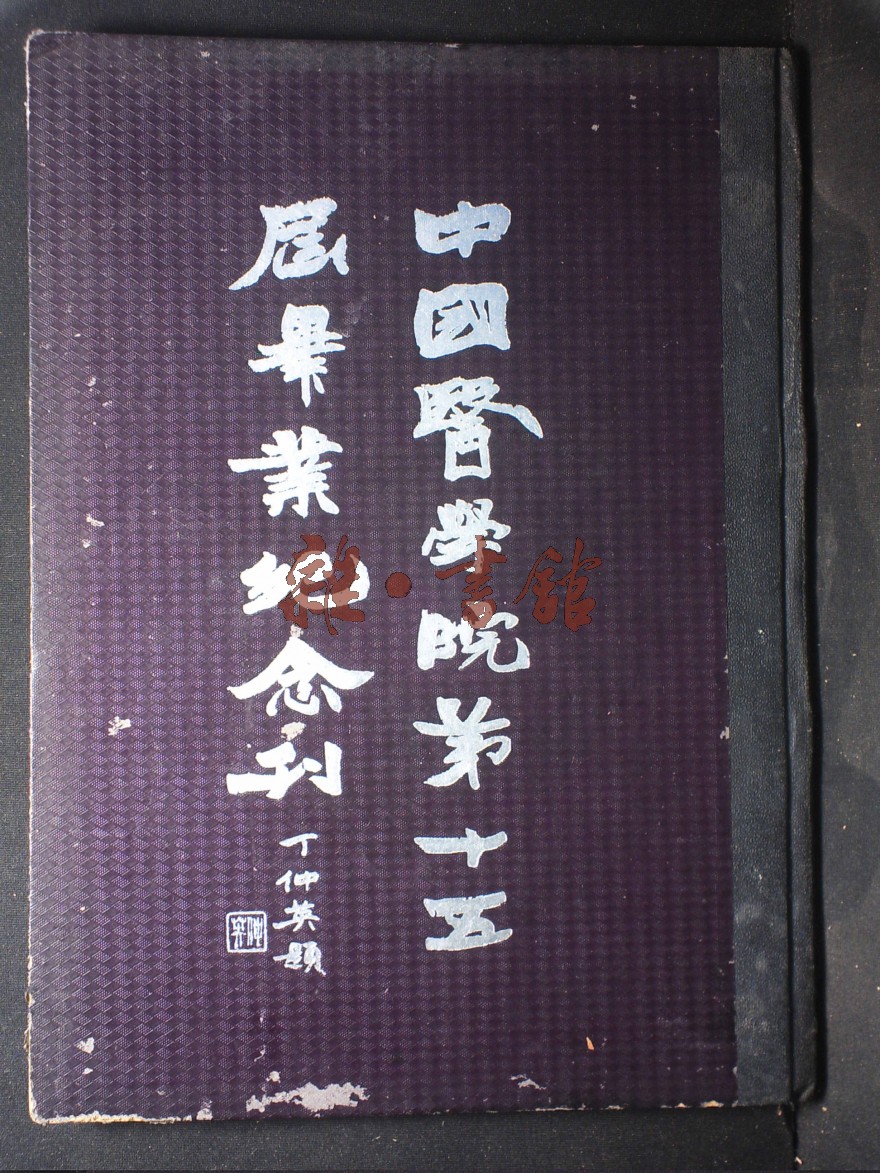 中國醫學院第十五
屆畢業紀念刊
丁仲英題
仲英
雅·書館